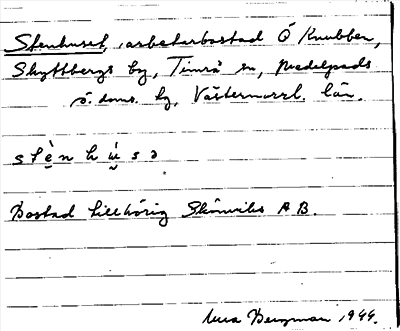 Stenhuset, arbetarbostad Ö Knubben,
Skyttbergs by, Timrå sn, Medelpads
ö. doms. hg, Västernorrl. län.
stè̤nhṳ́sə
Bostad tillhörig Skönviks AB.
Bergman 1944.